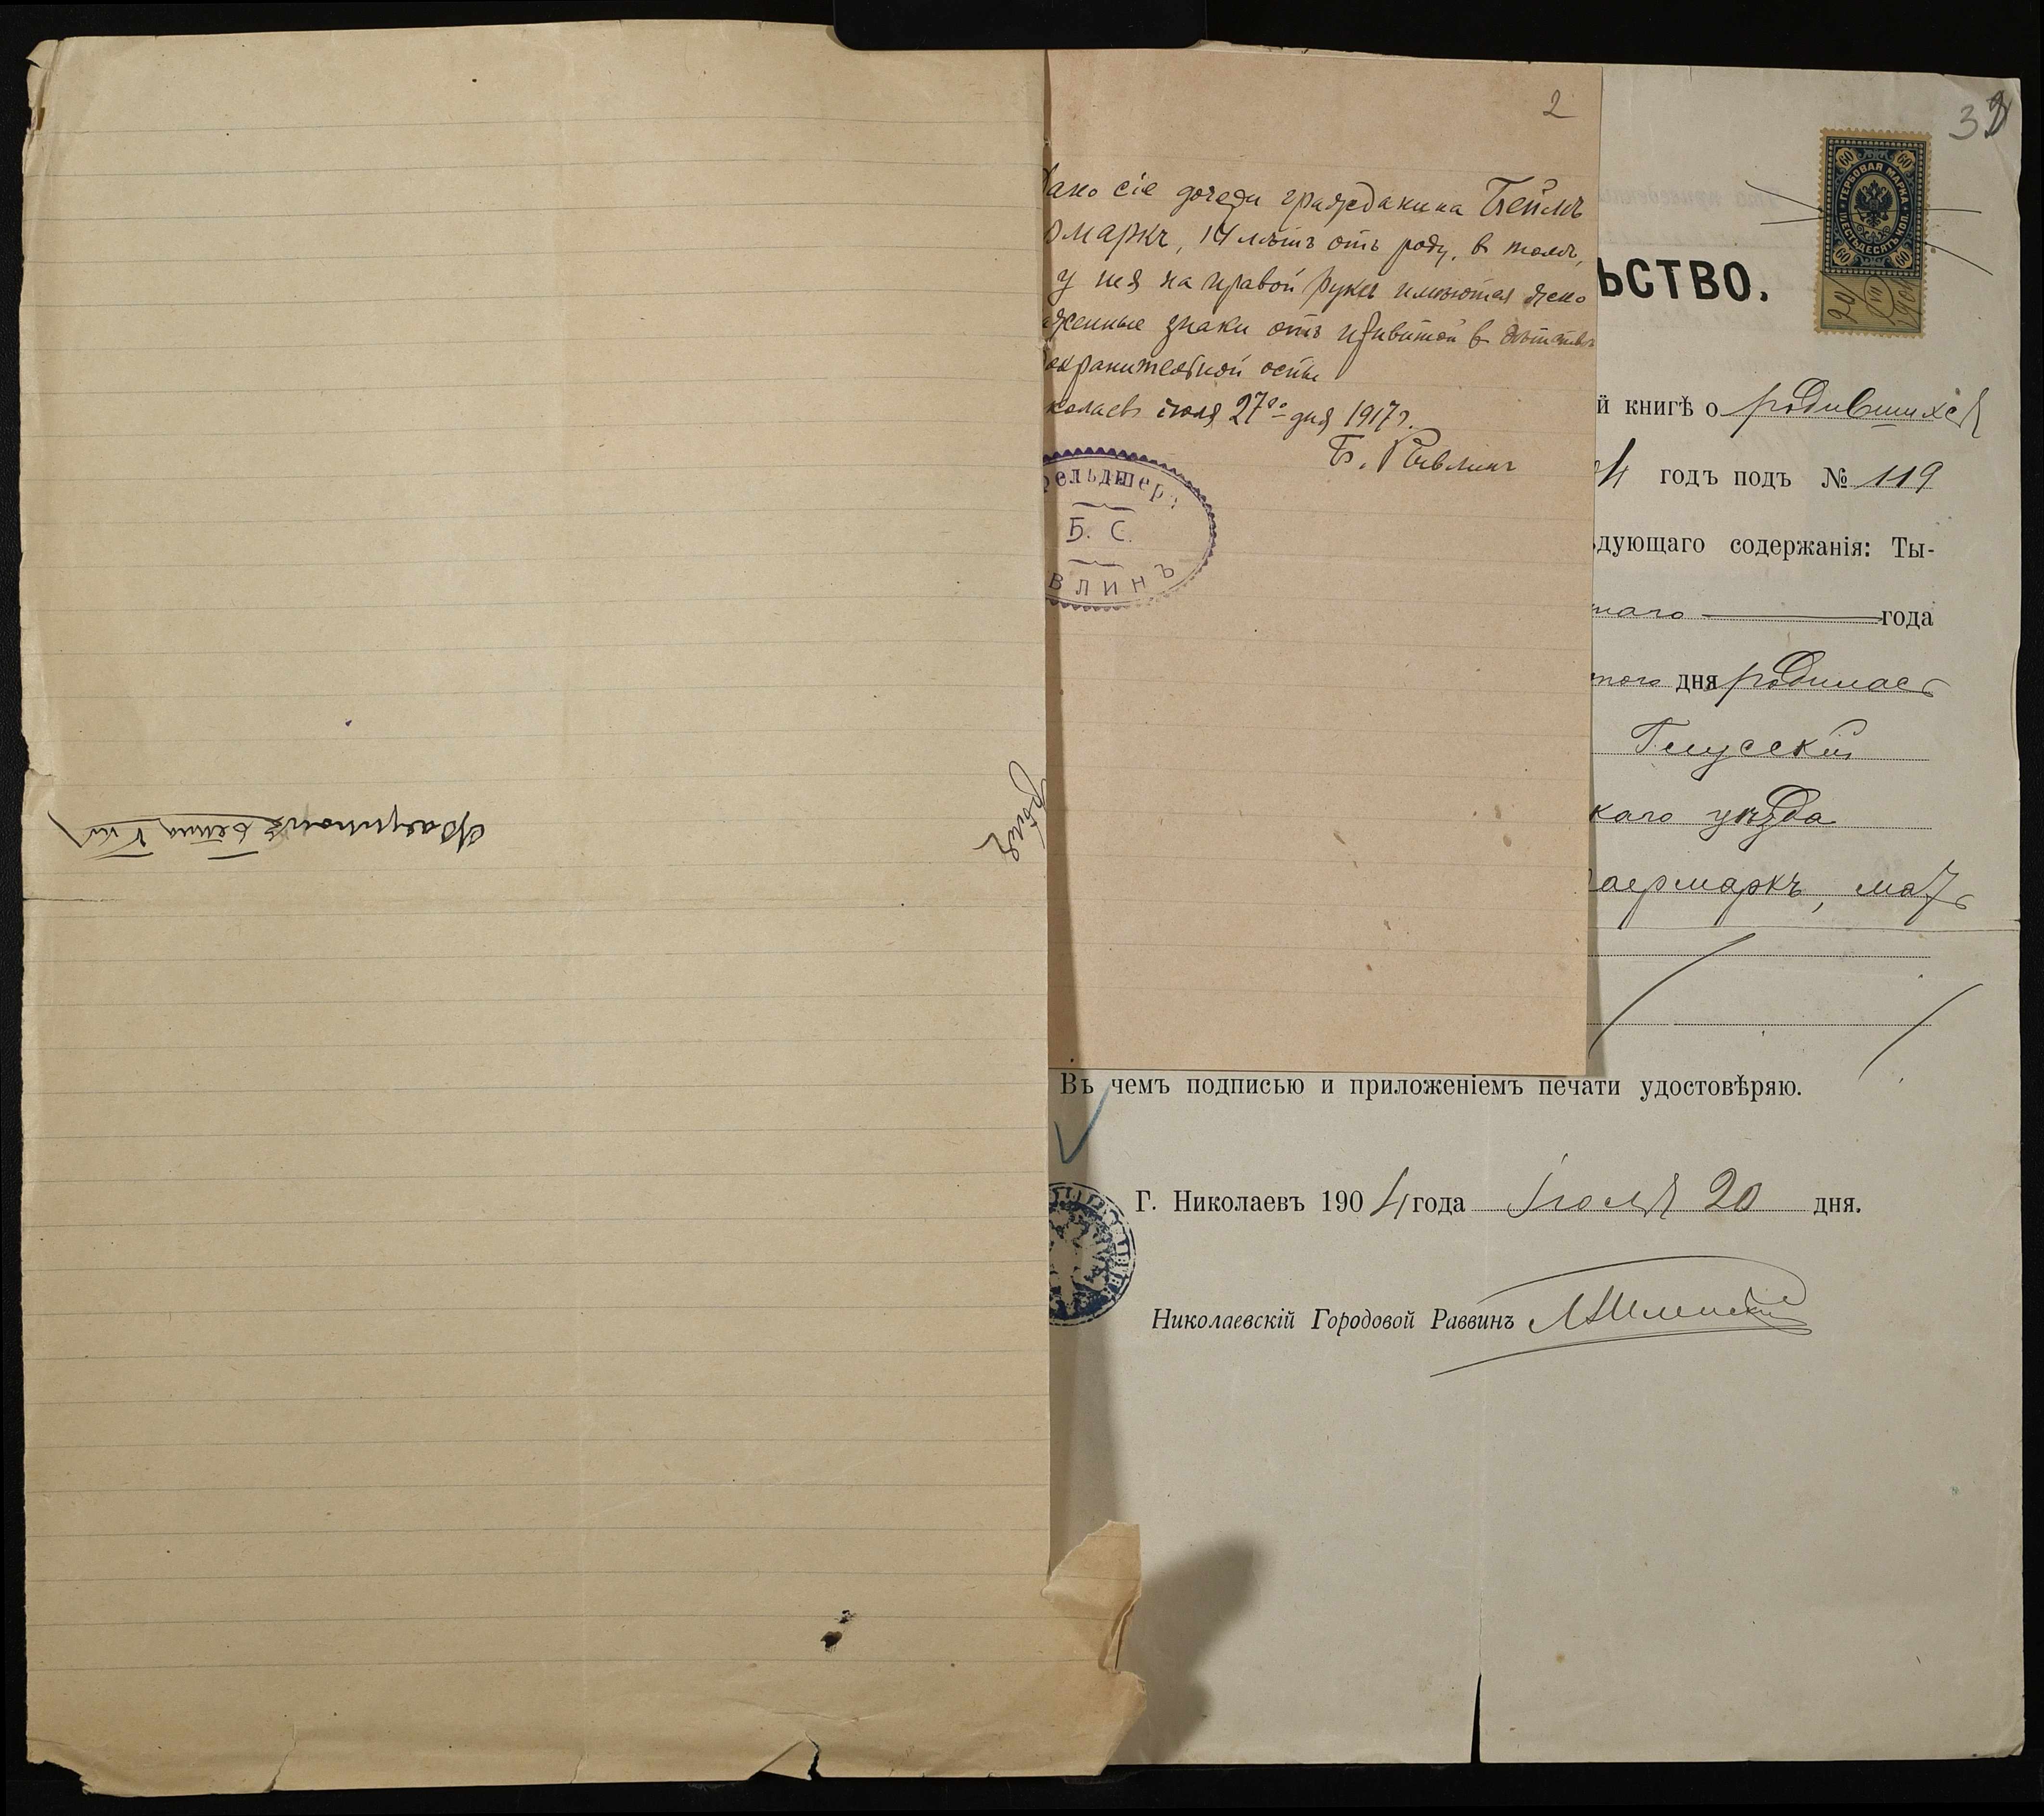 Фаермаркъ Бейла
2
Дано сіе дочери гражданина Бейлѣ
рмаркъ, 14 лѣтъ отъ роду, в томъ,
у нея на правой рукѣ имѣются ясно
женные знаки отъ привитой в дѣтствѣ
охранительной оспы
колаевъ іюля 27го дня 1917 г.
Б. Ривлинъ
Фельдшеръ
Б. С.
ВЛИНЪ
3
ГЕРБОВАЯ МАРКА
ШЕСТЬДЕСЯТЪ КОП.
60 60
60 60
20/VII 1904
ЬСТВО.
й книгѣ о родившихся
04 годъ подъ № 119
ѣдующаго содержанія: Ты-
таго года
того дня родилась
Глусскій
каго уѣзда
Фаермаркъ, мать
Въ чемъ подписью и приложеніемъ печати удостовѣряю.
Г. Николаевъ 1904 года Іюля 20 дня.
Николаевскій Городовой Раввинъ